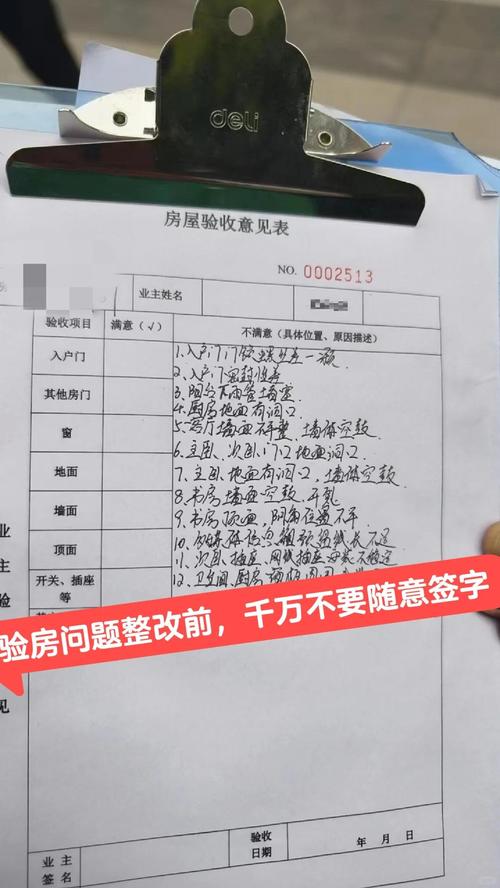 deli
房屋验收意见表
NO. 0002513
业主姓名
验收项目 满意（√） 不满意（具体位置、原因描述）
入户门
其他房门
窗
地面
墙面
顶面
开关、插座等
1、入户门门铰螺丝差一颗
2、入户门密封
3、阳台下雨管堵塞
4、厨房地面有洞口
5、客厅墙面不平整，墙体空鼓
6、主卧、次卧门口地面洞口
7、主卧地面有洞口，墙体空鼓
8、书房墙面空鼓、开裂
9、书房顶面，阴角位置不平
10、
11、次卧、插座、网线插座
12、卫生间、厨房
验房问题整改前，千万不要随意签字
业
主
验
见
业主签名
验收日期
年 月 日